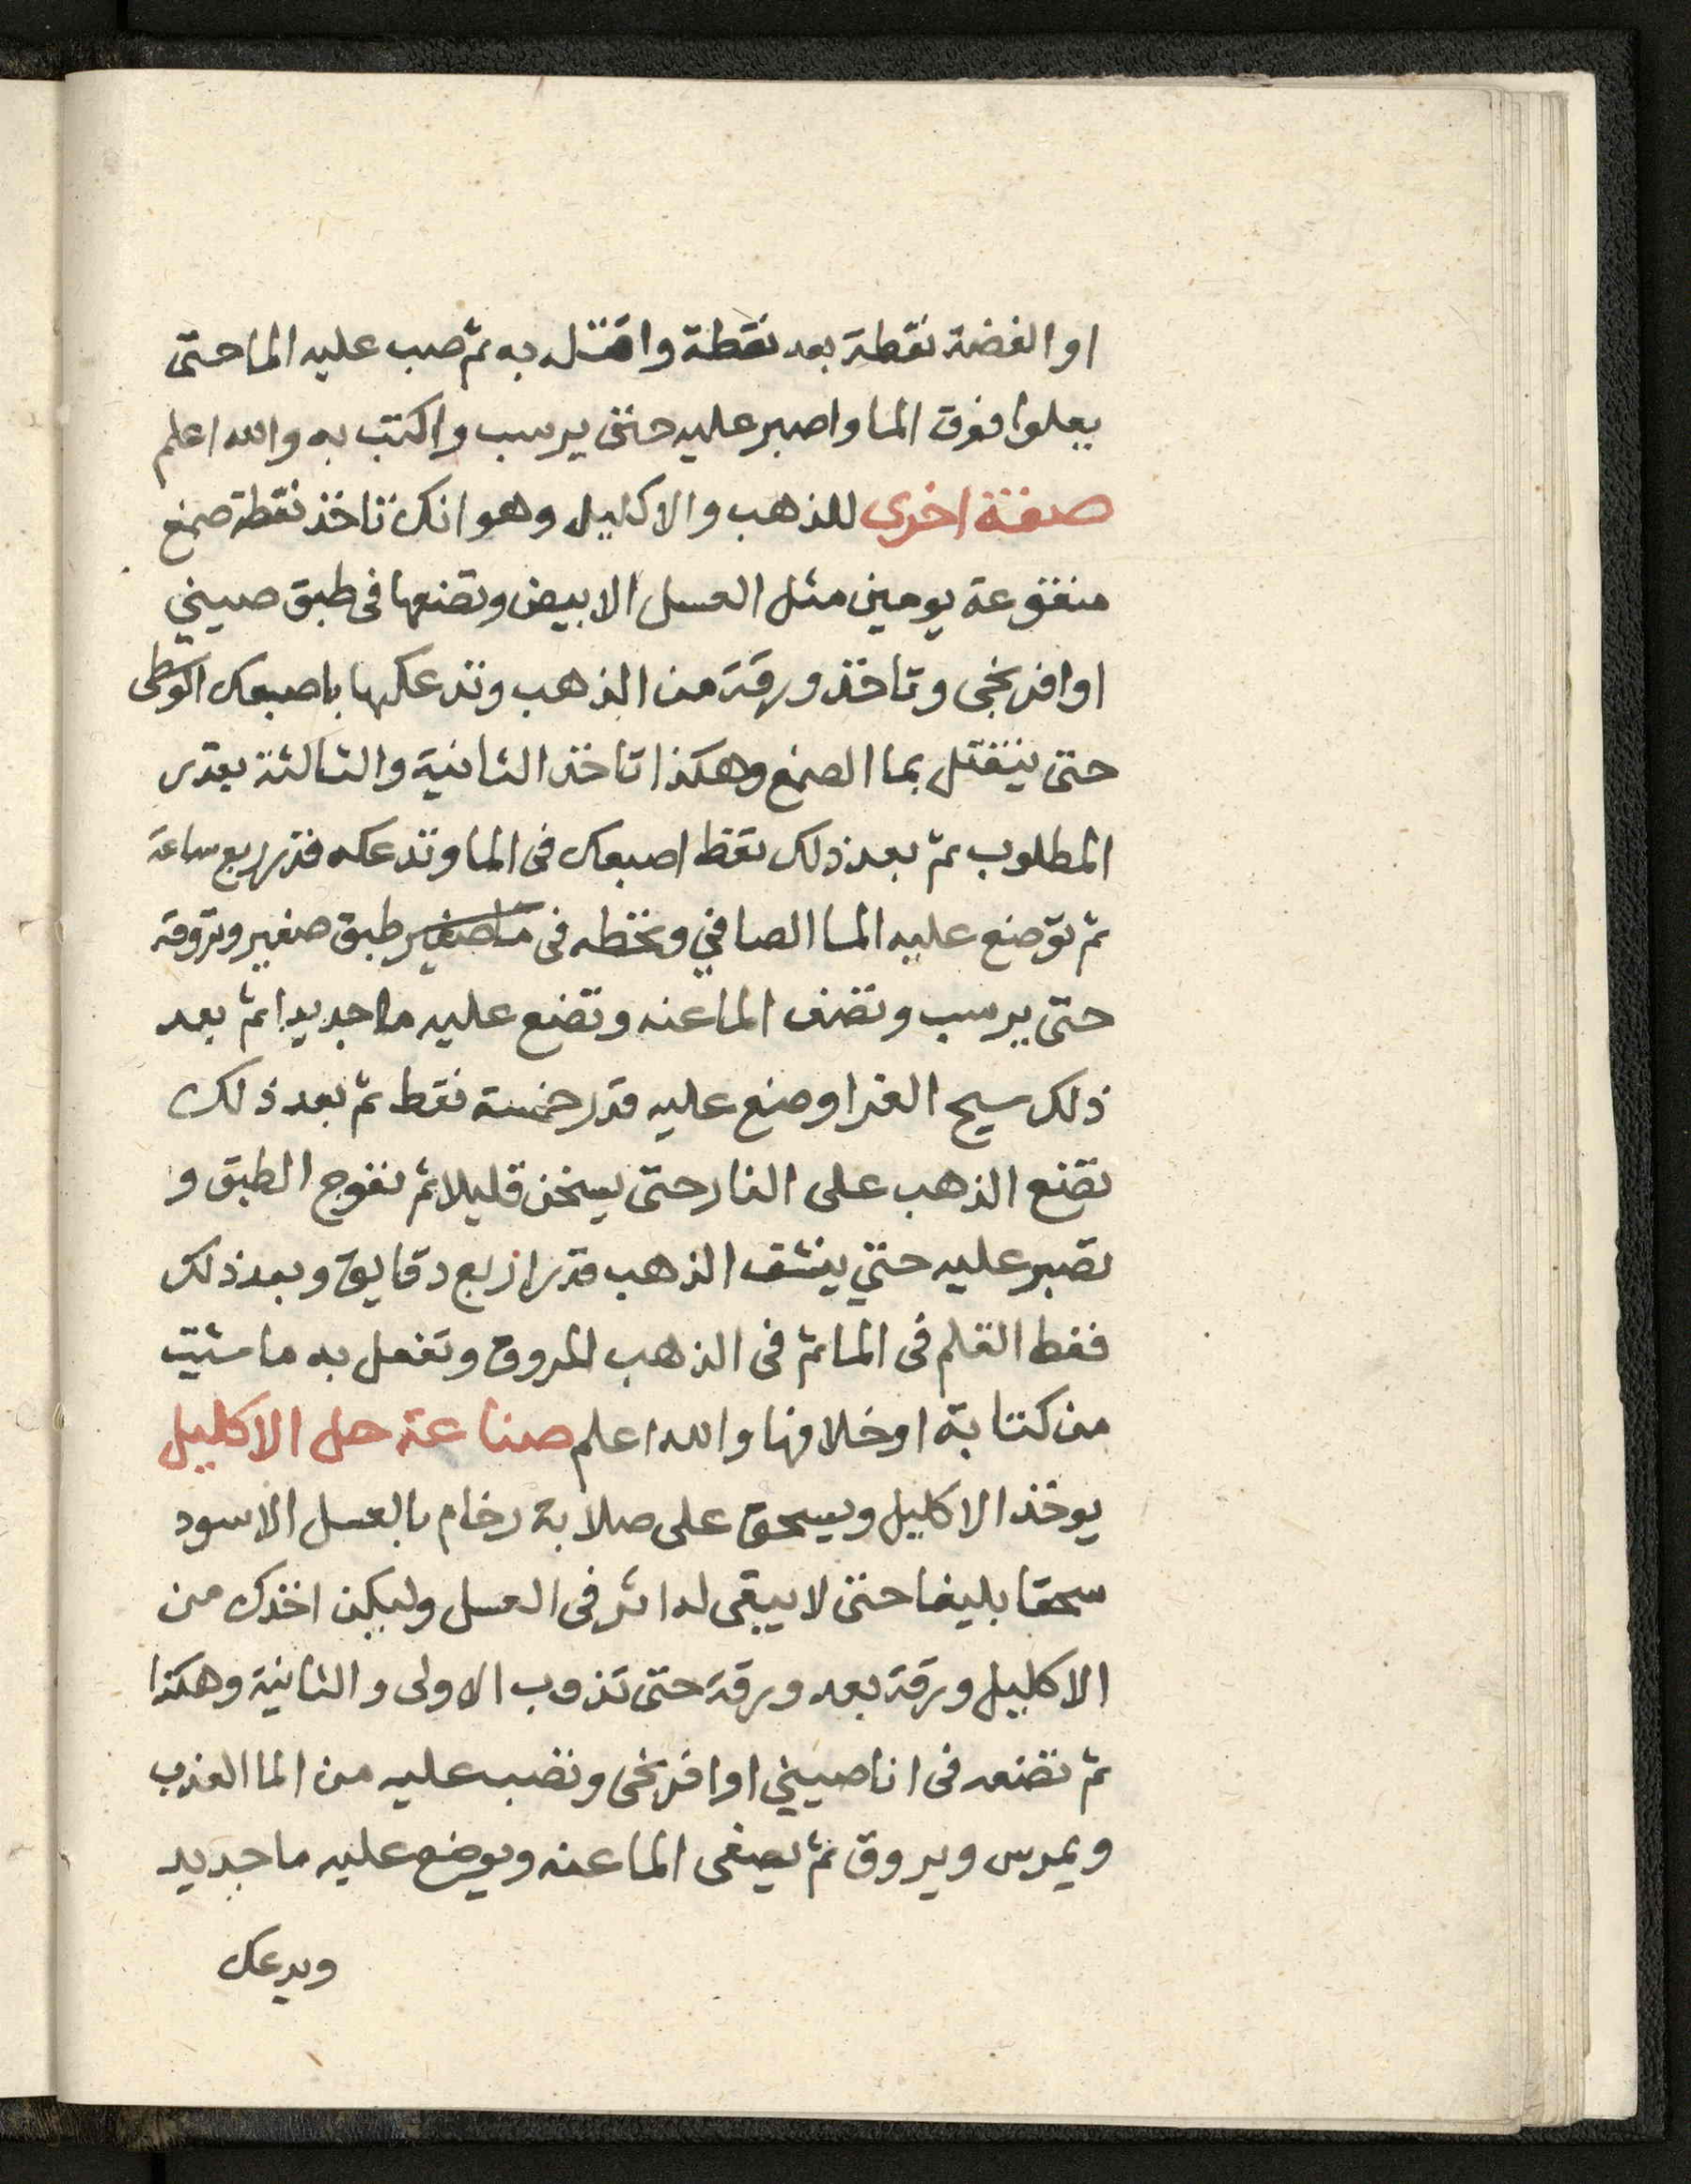 او الفضة نقطة بعد نقطة واقتله به ثم صب عليه الما حتى
يعلوا فوق الما واصبر عليه حتى يرسب واكتب به والله اعلم
صفة اخرى للذهب والاكليل وهو انك تاخذ نقطة صمغ
منقوعة يومين مثل العسل الابيض وتضعها فى طبق صيني
او افرنجى وتاخذ ورقة من الذهب وتدعكها باصبعك الوسطى
حتى ينفتل بما الصمغ وهكذا تاخذ الثانية والثالثة بقدر
المطلوب ثم بعد ذلك تغط اصبعك فى الما وتدعكه قدر ربع ساعة
ثم توضع عليه الما الصافي وتحطه فى ما صغير طبق صغير وتروقه
حتى يرسب وتصف الما عنه وتضع عليه ما جديدا ثم بعد
ذلك سيح الغرا وضع عليه قدر خمسة نقط ثم بعد ذلك
تضع الذهب على النار حتى يسخن قليلا ثم تفوج الطبق و
تصبر عليه حتي ينشف الذهب قدر اربع دقايق وبعد ذلك
فغط القلم فى الما ثم فى الذهب المروق وتفعل به ما شيت
من كتابة او خلافها والله اعلم صناعة حل الاكليل
يوخذ الاكليل ويسحق على صلابة رخام بالعسل الاسود
سحقا بليغا حتى لا يبقى له اثر فى العسل وليكن اخذك من
الاكليل ورقة بعد ورقة حتى تذوب الاولى والثانية وهكذا
ثم تضعه فى انا صيني او افرنجى وتصب عليه من الما العذب
ويمرس ويروق ثم يصفى الما عنه ويوضع عليه ما جديد
ويدعك